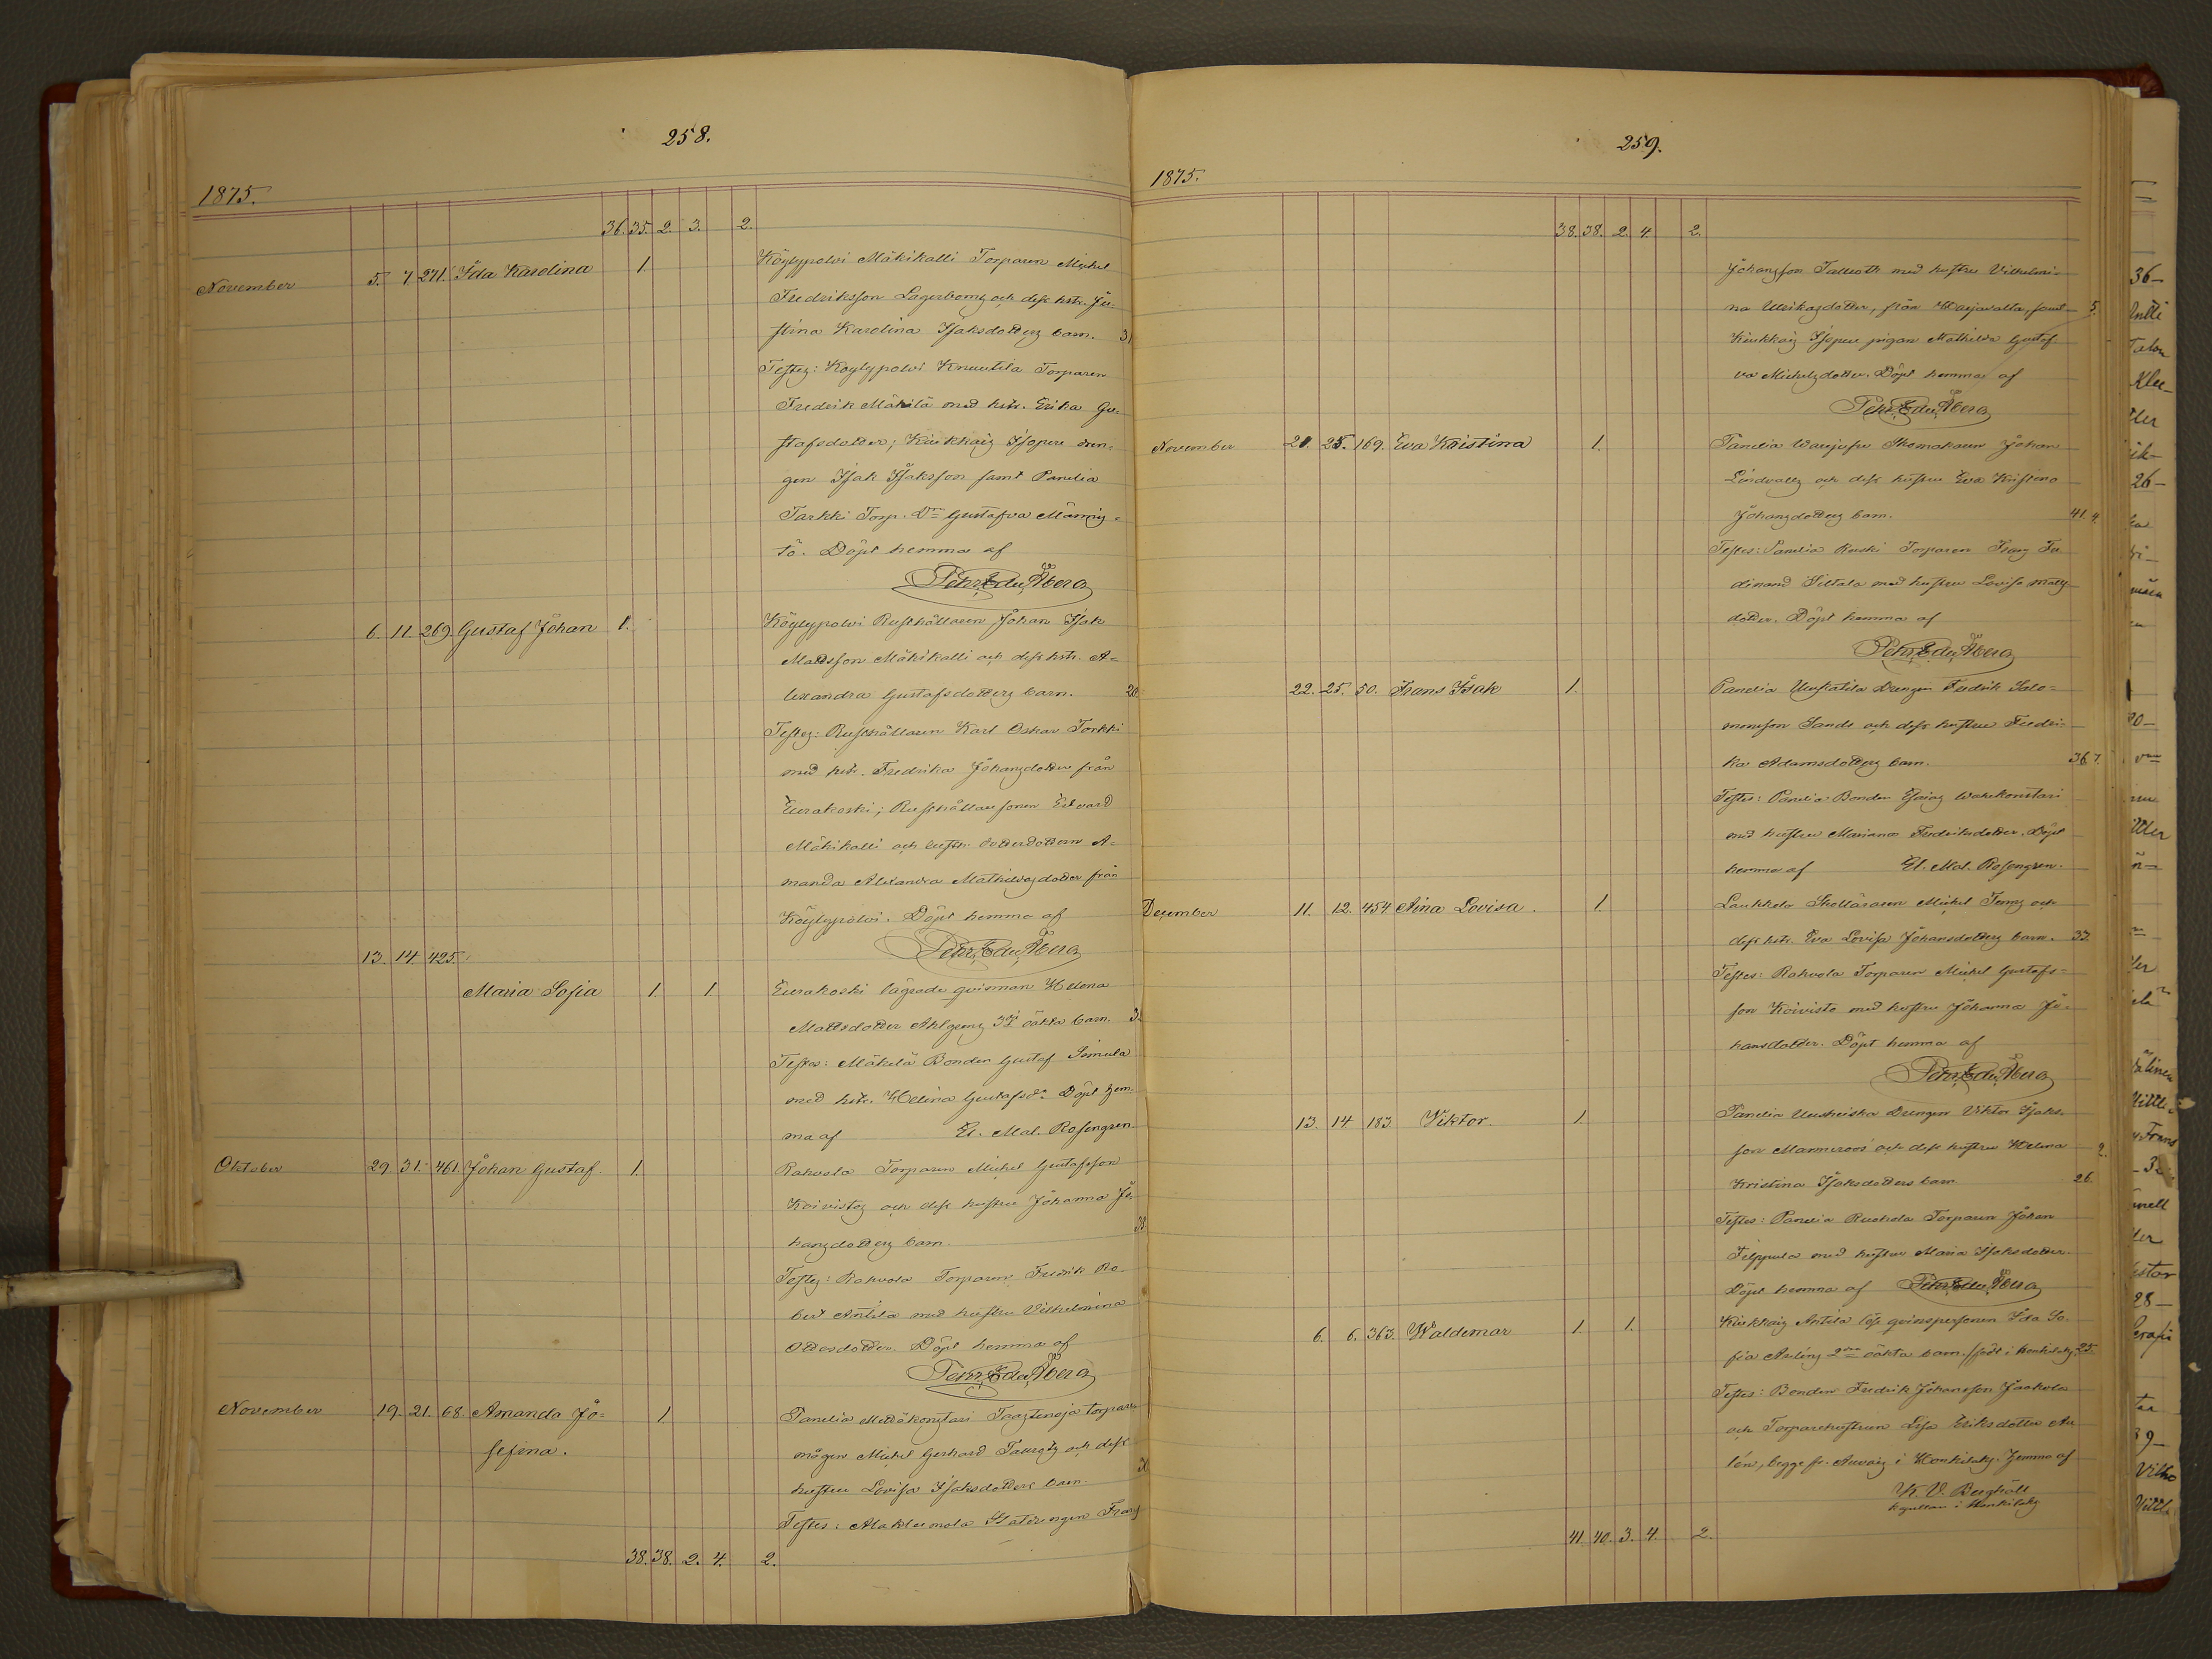 258.
1875.
36. 35. 2. 3. 2.
November 5. 7 271. Ida Karolina 1. Köylypolvi Mäkikalli Torparen Michel
Fredriksson Lagerbomz och dess hstr. Ju-
stina Karolina Isaksdotterz barn. 31
Testez: Köylypolvi Knuutila Torparen
Fredrik Mäkilä med hstr. Erika Gu-
stafsdotter; Kiukkaiz Isopere dren-
gen Isak Isaksson samt Panelia
Tarkki Torp. Dr Gustafva Männiz-
tö. Döpt hemma af
Pehr Edv. Åberg
6. 11. 269. Gustaf Johan 1. Köylypolvi Rusthållaren Johan Isak
Mattsson Mäkikalli och dess hstr. A-
lexandra Gustafsdotterz barn. 20
Testez: Rusthållaren Karl Oskar Torkki
med hstr. Fredrika Johanzdotter från
Eurakoski; Rusthållaresonen Edvard
Mäkikalli och Dotterdottern A-
manda Alexandra Mathildazdotter från
Köylypolvi. Döpt hemma af
Pehr Edv. Åberg
13. 14. 425.
Maria Sofia 1. 1. Eurakoski lägrade qvinnan Helena
Mattsdotter Ahlgrenz 3dj oäkta barn. 3
Testes: Mäkelä Bonden Gustaf Simula
med hstr. Helina Gustafsdr Döpt hem-
ma af El. Mal. Rosengren.
Oktober 29. 31. 461. Johan Gustaf. 1. Rahvola Torparen Michel Gustafsson
Koivistoz och dess hustru Johanna Jo-
hanzdotterz barn. 33
Testez: Rahvola Torparen Fredrik Ro-
bert Anttila med hustru Vilhelmina
Ottosdotter. Döpt hemma af
Pehr Edv. Åberg
November 19. 21. 68. Amanda Jo- 1 Panelia torpare
sefina. mågen Michel Gerhard och dess
hustru Lovisa Isaksdotters barn.
Testes: Franz
38. 38. 2. 4. 2.
259.
1875.
38. 38. 2. 4. 2.
Johansson Tallroth med hustru Vilhelmi-
na Ulrikazdotter, från Harjavalta, samt 5.
Kiukkaiz Isopere pigan Mathilda Gustaf
va Michelzdotter. Döpt hemma af
Pehr Edv. Åberg
November 21. 25. 169. Eva Kristina 1. Panelia Skomakaren Johan
Lindvallz och dess hustru Eva Kristina
Johanzdotterz barn. 41. 4.
Testes: Panelia Torparen Franz Fer
dinand Siltala med hustru Lovisa Matts
dotter. Döpt hemma af
Pehr Edv. Åberg
22. 25. 50. Frans Isak 1. Panelia Drengen Fredrik Salo-
monsson Sands och dess hustru Fredri-
ka Adamsdotterz barn. 36. 7.
Testes: Panelia Bonden Wähäkonstari
med hustru Mariana Fredriksdotter. Döpt
hemma af El. Mal. Rosengren.
December 11. 12. 454 Aina Lovisa. 1. Laukkola Skolläraren Michel och
dess hstr. Eva Lovisa Johansdotterz barn. 33.
Testes: Rahvola Torparen Michel Gustafs-
son Koivisto med hustru Johanna Jo-
hansdotter. Döpt hemma af
Pehr Edv. Åberg
13. 14 183. Viktor. 1. Panelia Drengen Viktor Isaks-
son och dess hustru Helena 2.
Kristina Isaksdotters barn 26.
Testes: Panelia Ruohola Torparen Johan
Filppula med hustru Maria Isaksdotter.
Döpt hemma af Pehr Edv. Åberg
6. 6. 363. Waldemar 1. 1. Kiukkaiz Anttila lösa qvinspersonen Ida So-
fia 2dra oäkta barn. /född i Honkilaks. 25.
Testes: Bonden Fredrik Johansson Jaakola
och Torparehustrun Lisa Eriksdotter Au
lén, begge fr. Auvaiz i Honkilaks. Hemma af
K. V. Berghäll
i Honkilaks
41. 40. 3. 4. 2.